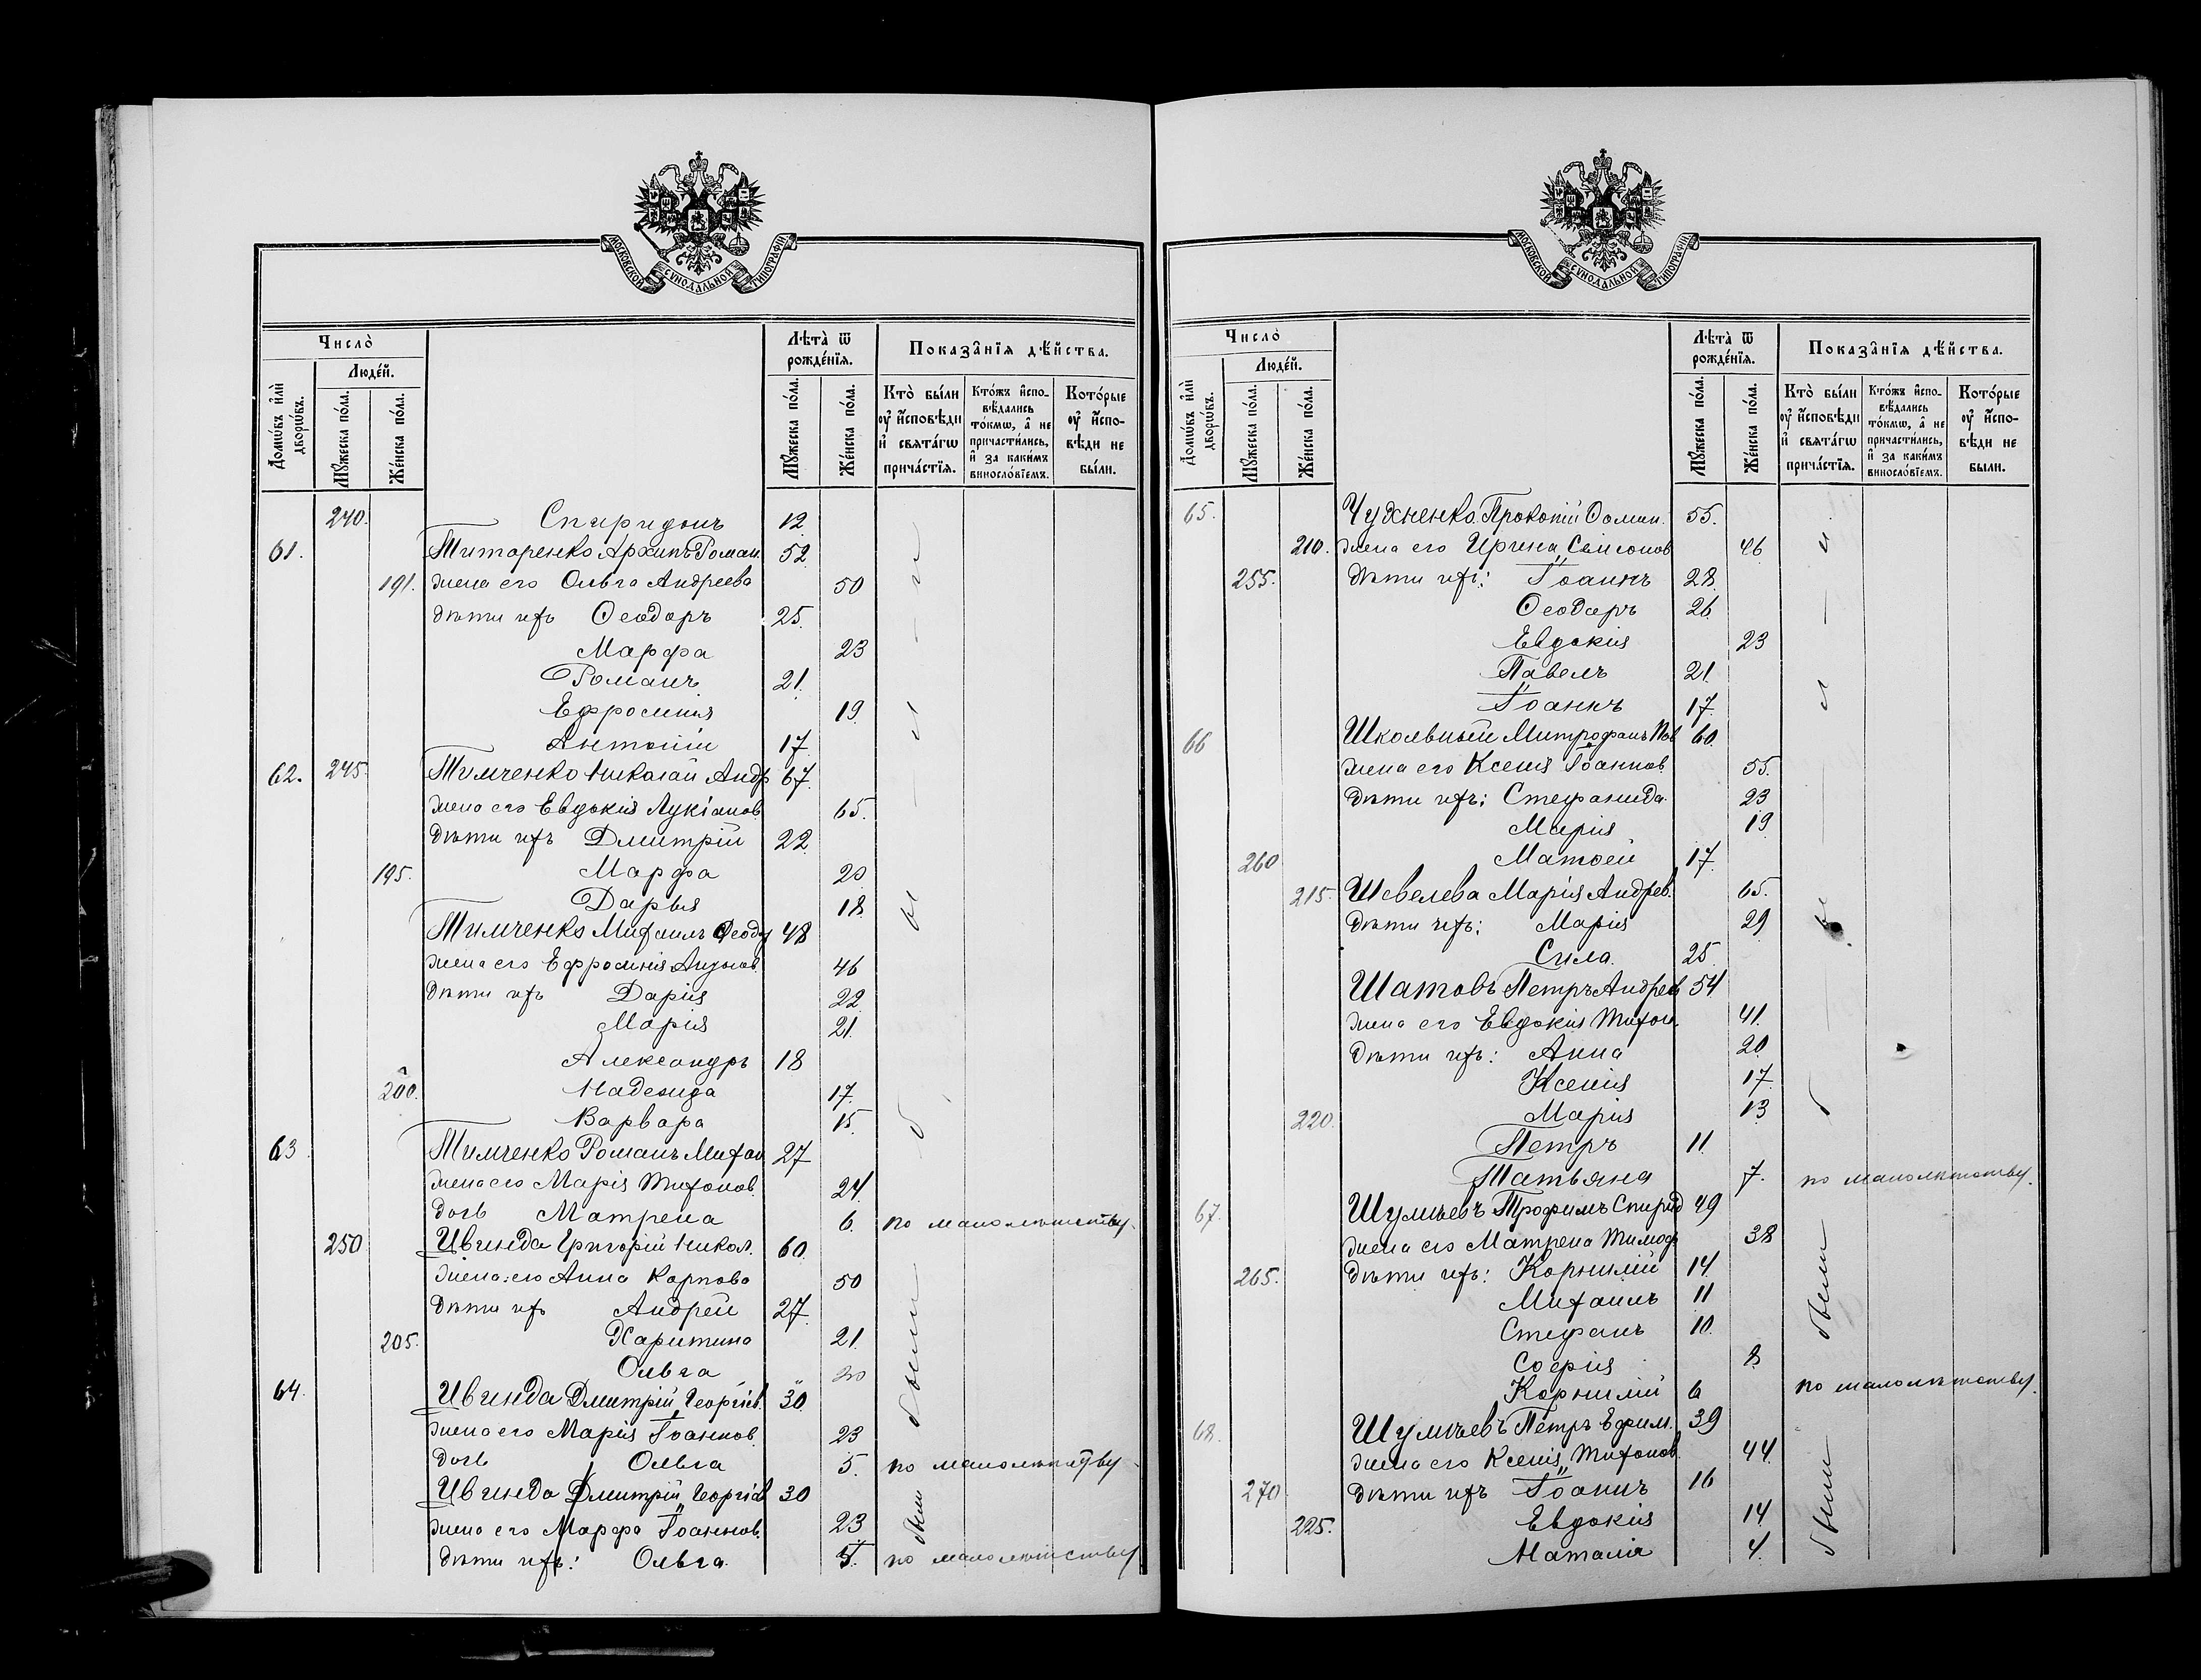 МОСКОВСКОЙ СѴНОДАЛЬНОЙ ТИПОГРАФІИ.
Число̀
Людей.
Домѡвъ и҆лѝ дворѡвъ.
Мꙋжеска по́ла.
Же́нска по́ла.
Лѣта̀ ѿ рожде́нїѧ.
Мꙋжеска по́ла.
Же́нска по́ла.
Показа̑нїѧ дѣ́йства.
Кто̀ бы́ли
ᲂу҆ и҆́сповѣди
и҆ свѧта́гѡ
прича́стїѧ.
Кто́жъ и҆спо-
вѣ́дались
то́кмѡ, а҆ не
причасти́лись,
и҆ за каки́мъ
винословіемъ.
Кото́рые
ᲂу҆ и҆́спо-
вѣди не
бы́ли.
240. Спиридонъ 12
61. Титаренко Архипъ Роман. 52
191. жена его Ольга Андреева 50
дѣти ихъ Ѳеодоръ 25.
Марфа 23
Романъ 21.
Ефросинія 19.
Антоній 17
62. 245. Тимченко Николай Андр 67.
жена его Евдокія Лукіанов 65.
дѣти ихъ Дмитрій 22.
195. Марфа 20
Дарья 18.
Тимченко Михаилъ Ѳеод 48
жена его Ефросинія 46
дѣти ихъ Дарія 22.
Марія 21.
Александръ 18
200. Надежда 17.
Варвара 15.
63. Тимченко Романъ Михаи 27
жена его Марія Тихонов. 24.
дочь Матрена 6. по малолѣтству.
250 Цвинда Григорій Никол. 60.
жена его Анна Карпова 50
дѣти ихъ Андрей 27.
205. Харитина 21.
Ольга 20
64. Цвинда Дмитрій Георгіев. 30.
жена его Марія Іоаннов. 23
дочь Ольга 5. по малолѣтству
Цвинда Дмитрій Георгіев 30
жена его Марфа Іоаннов. 23
дѣти ихъ: Ольга. 5. по малолѣтству
были
были
МОСКОВСКОЙ СѴНОДАЛЬНОЙ ТИПОГРАФІИ.
Число̀
Людей.
Домѡвъ и҆лѝ дворѡвъ.
Мꙋжеска по́ла.
Же́нска по́ла.
Лѣта̀ ѿ рожде́нїѧ.
Мꙋжеска по́ла.
Же́нска по́ла.
Показа̑нїѧ дѣ́йства.
Кто̀ бы́ли
ᲂу҆ и҆́сповѣди
и҆ свѧта́гѡ
прича́стїѧ.
Кто́жъ и҆спо-
вѣ́дались
то́кмѡ, а҆ не
причасти́лись,
и҆ за каки́мъ
винословіемъ.
Кото́рые
ᲂу҆ и҆́спо-
вѣди не
бы́ли.
65. Чухненко Прокопій Ѳомин. 55.
210. жена его Ирина Самсонов 46
255. дѣти ихъ: Іоаннъ 28.
Ѳеодоръ 26
Евдокія 23
Павелъ 21.
Іоаннъ 17.
66 Школьный Митрофанъ 60.
жена его Ксенія Іоаннов. 55.
дѣти ихъ: Стефанида 23
Марія 19
260 Матѳей 17.
215. Шевелева Марія Андрев. 65.
дѣти ихъ: Марія 29
Сила. 25.
Шатовъ Петръ Андрев 54
жена его Евдокія Тихон. 41.
дѣти ихъ: Анна 20.
Ксенія 17.
220. Марія 13
Петръ 11.
Татьяна 7. по малолѣтству.
67. Шулшевъ Трофимъ Спирид 49
жена его Матрена Тимоѳ 38
265. дѣти ихъ: Корнилій 14.
Михаилъ 11
Стефанъ 10.
Софія 8.
Корнилій 6 по малолѣтству.
68. Шулшевъ Петръ Ефим. 39
жена его Ксенія Тихонов. 44
270 дѣти ихъ Іоаннъ 16
225. Евдокія 14
Наталія 4.
были
были